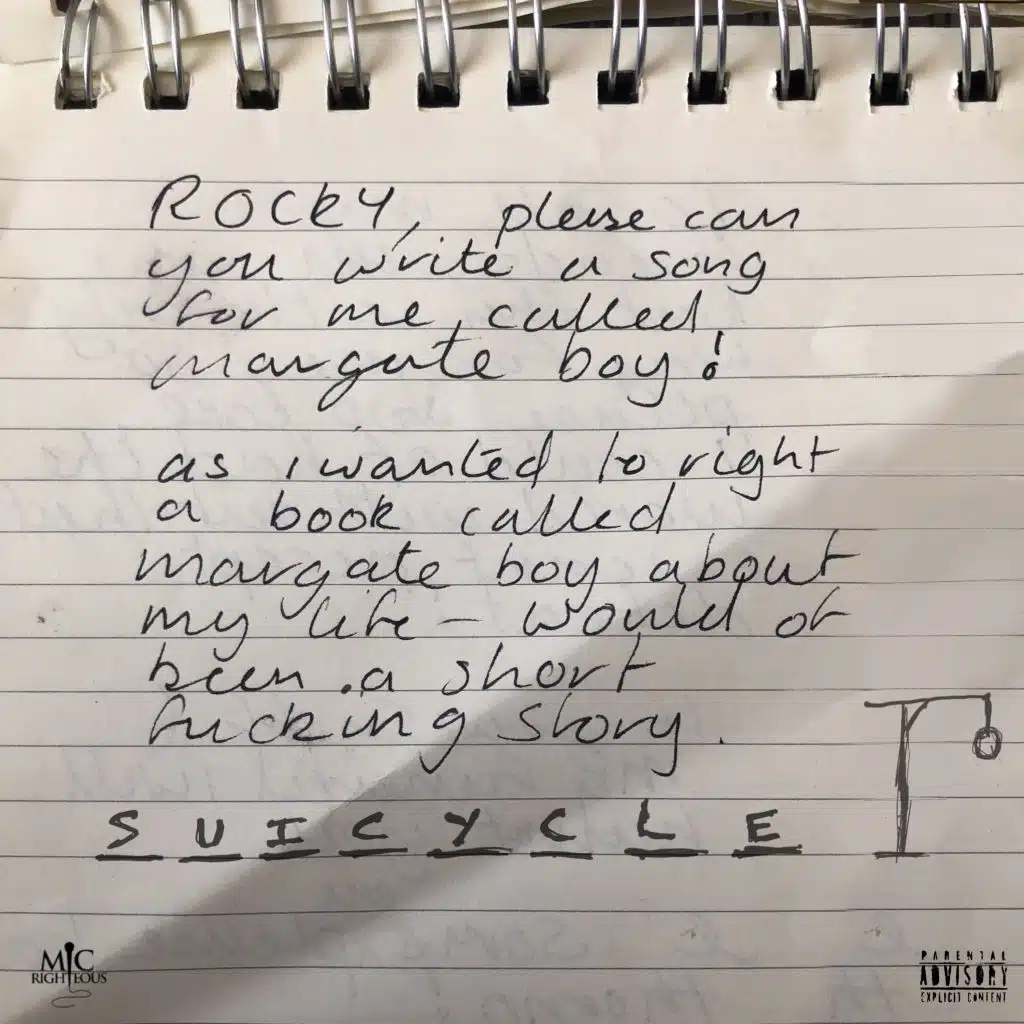 ROCKY, please can
you write a song
for me, called
margate boy!
as i wanted to right
a book called
margate boy about
my life – would of
been .a short
fucking story.
S U I C Y C L E
MIC
RIGHTEOUS
PARENTAL
ADVISORY
EXPLICIT CONTENT